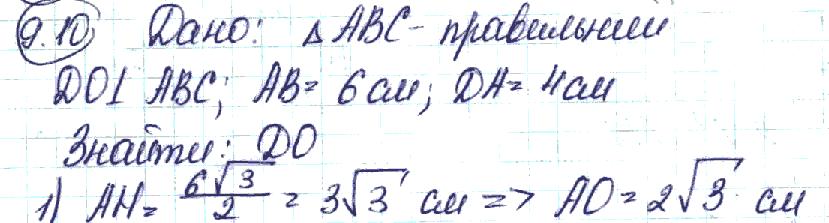 9.10 Дано: △ABC - правильний
DO⊥ABC; AB = 6 см; DA = 4 см
Знайти: DO
1) AH = 6√3/2 = 3√3 см => AO = 2√3 см